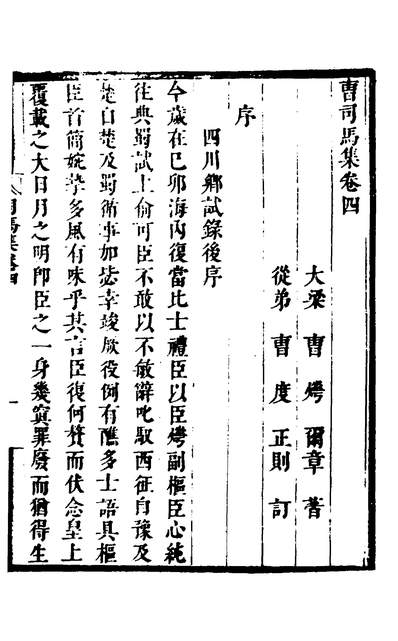 曹司馬集卷四
大梁 曹 㷍 爾章 著
從弟 曹 度 正則 訂
序
四川鄉試錄後序
今歲在己卯海內復當比士禮臣以臣㷍副樞臣心純
往典蜀試上俞可臣不敢以不敏辭叱馭西征自豫及
楚自楚及蜀循事如毖幸竣厥役例有醮多士語具樞
臣首簡婉摯多風有味乎其言臣復何贅而伏念皇上
覆載之大日月之明卽臣之一身幾寘罪廢而猶得生
司馬集卷四
一